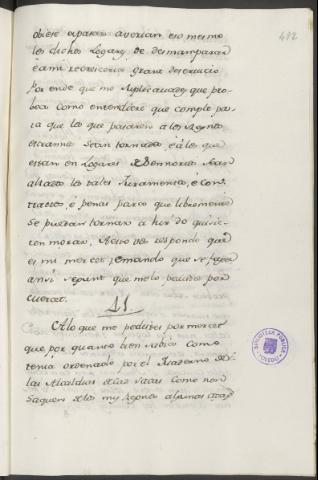 482
obiese a parar, averian eso mesmo
los dichos Logares de desmamparar
è a mi recreceria grant deservicio
Por ende que me suplicavades que pro-
beca como entendiere que comple pa-
ra que los que pasaren a los Regnos
estrannos sean tornados è a los que
estan en Logares de Sennorios sean
alzados los tales Juramentos, è con-
tractos è penas porco que libremente
se puedan tornar a hir do quisie-
ren morar, A esto vos respondo que
es mi merced, è mando que se faga
ansi segunt que melo pedides por
merced.
11
A lo que me pedides por merced
que por quanto bien sabia como
tenia ordenado por el Quaderno de
las Alcaldias de las sacas como non
saquen de los mis Regnos algunas cosas
BIBLIOTECA PÚBLICA
TOLEDO